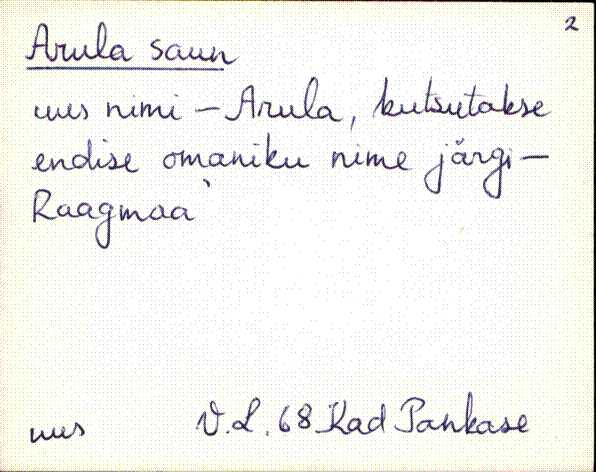 2
Arula saun
uus nimi – Arula, kutsutakse
endise omaniku nime järgi –
Raagmaa
uus V.L. 68 Kad Pankase